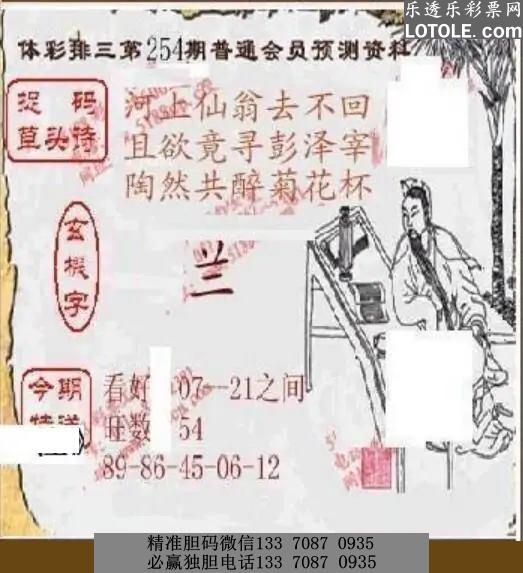 乐透乐彩票网
LOTOLE.COM
体彩排三第254期普通会员预测资料
捉码
草头诗
河上仙翁去不回
且欲竟寻彭泽宰
陶然共醉菊花杯
玄機字
兰
今期
特送
看好 07--21之间
旺数 54
89-86-45-06-12
精准胆码微信133 7087 0935
必赢独胆电话133 7087 0935